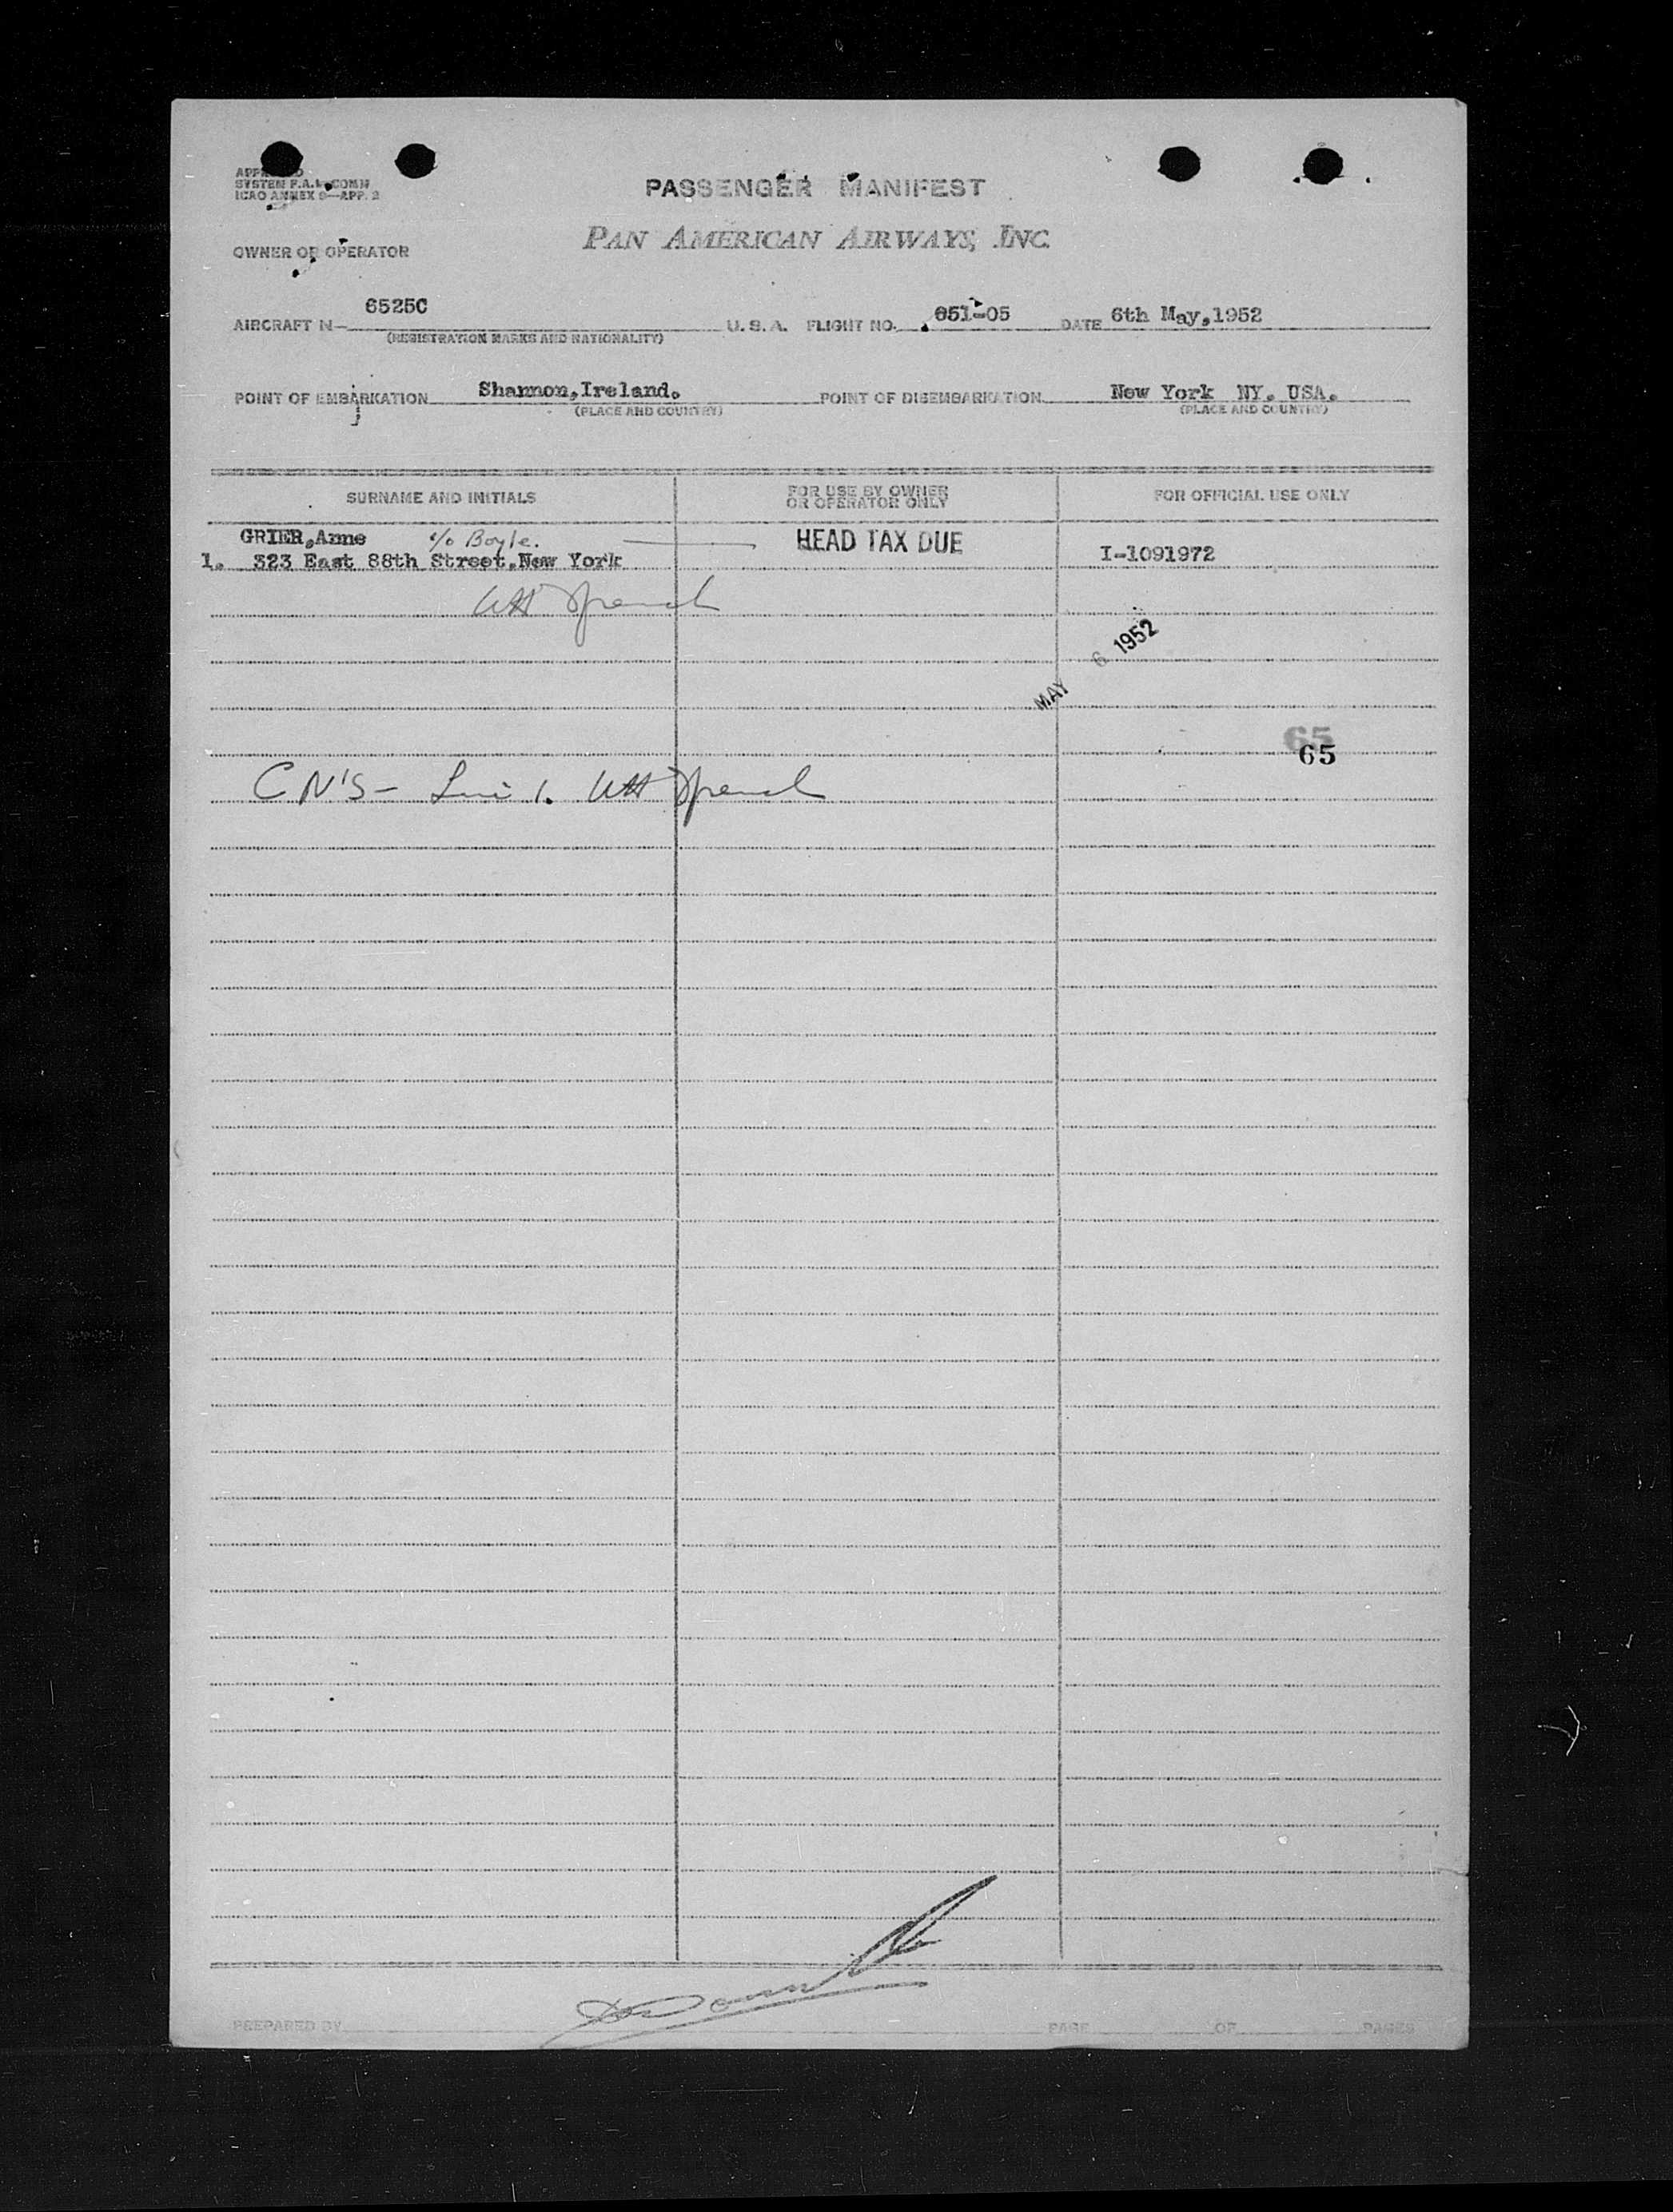 SYSTEM F.A.L. COMM
ICAO ANNEX 9—APP. 2
PASSENGER MANIFEST
PAN AMERICAN AIRWAYS, INC.
OWNER OR OPERATOR
AIRCRAFT N— 6525C U. S. A. FLIGHT NO. 051-05 DATE 6th May,1952
(REGISTRATION MARKS AND NATIONALITY)
POINT OF EMBARKATION Shannon,Ireland. POINT OF DISEMBARKATION New York NY. USA.
(PLACE AND COUNTRY) (PLACE AND COUNTRY)
SURNAME AND INITIALS FOR USE BY OWNER OR OPERATOR ONLY FOR OFFICIAL USE ONLY
GRIER,Anne c/o Boyle. HEAD TAX DUE
1. 323 East 88th Street,New York I-1091972
MAY 6 1952
65
65
CN'S - 1.
PREPARED BY PAGE OF PAGES